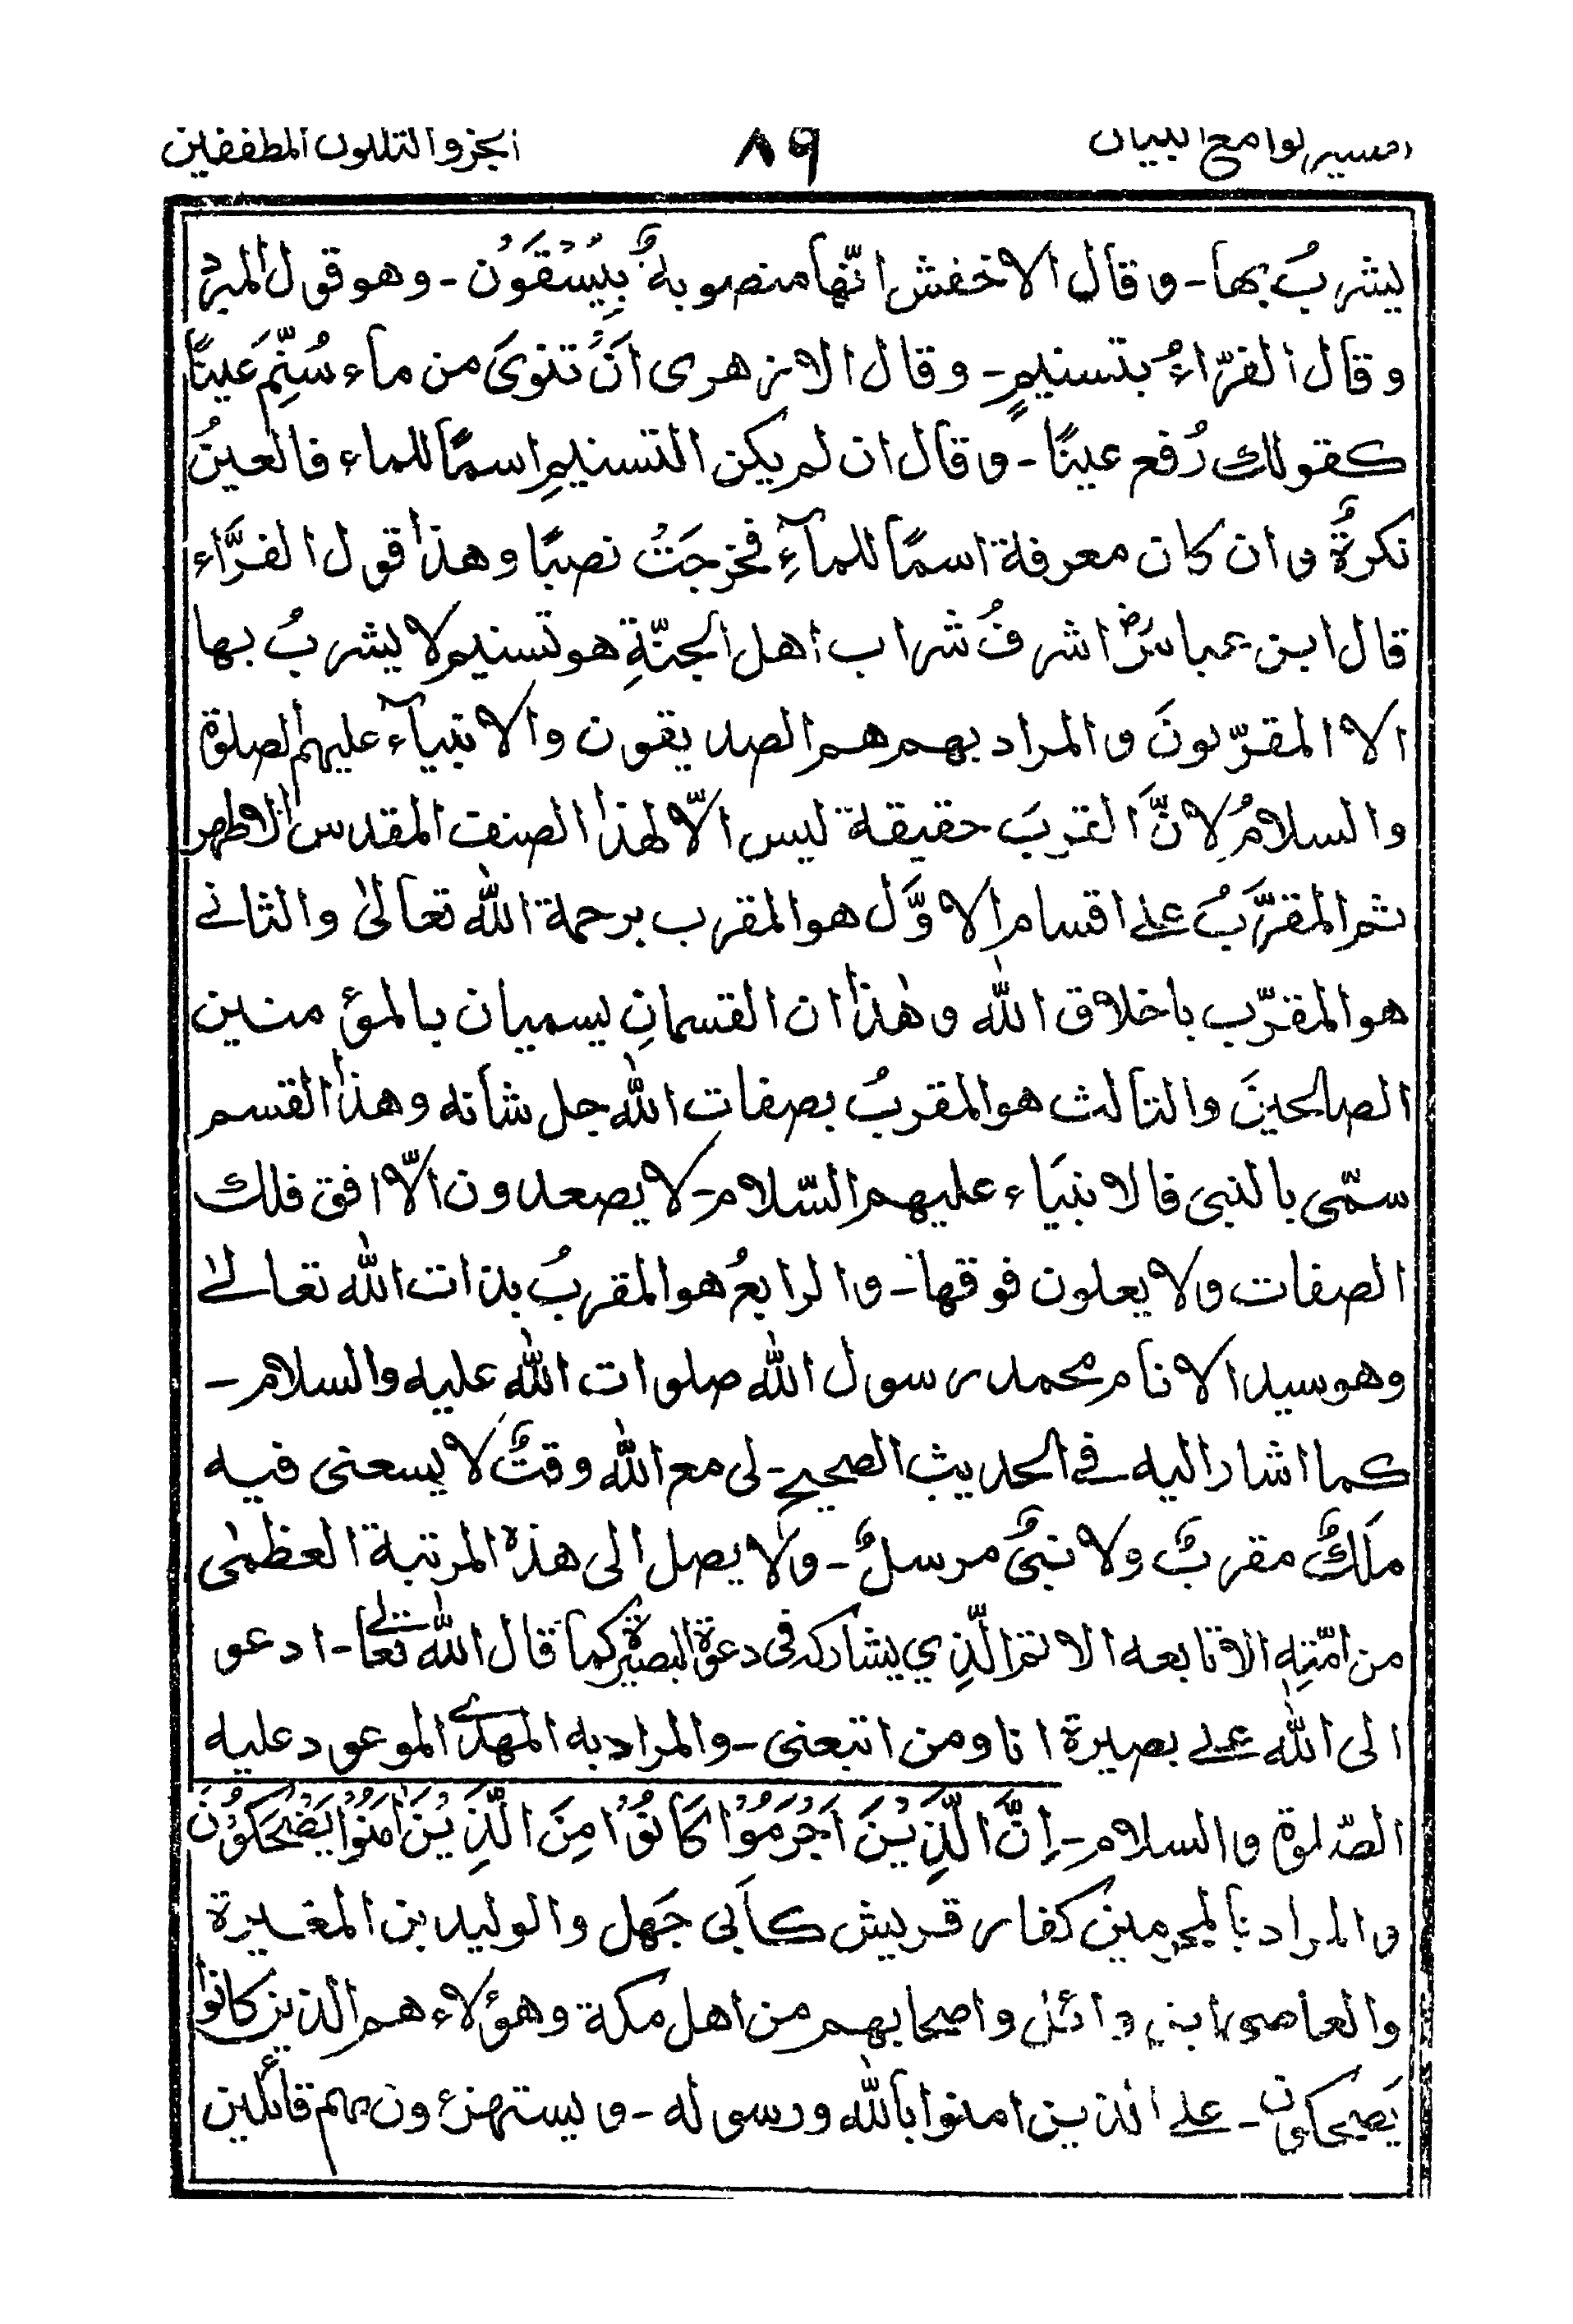 تفسير لوامع البيان ٨٩ الجزو الثلثون المطففين
يشربُ بها - و قال الاخفش انّها منصوبةٌ بِيُسْقَوْن - وهو قول المبرّد
و قال الفرّاءُ بتسنيمٍ - و قال الازهرى انَّ تنوىَ من ماء سُنِّم عَينًا
كقولك رُفع عينًا - و قال ان لم يكن التسنيمِ اسمًا للماء فالعينُ
نكرةٌ و ان كان معرفة اسمًا للمآءِ فخرجَتْ نصبًا وهذا قول الفرَّاء
قال ابن عباسؓ اشرفُ شراب اهل الجنّةِ هو تسنيم لا يشربُ بها
الا المقرّبونَ و المراد بهم هم الصديقون والانبيآء عليهم الصلوة
والسلامُ لانَّ القربَ حقيقة ليس الّا لهذا الصنف المقدس الاطهر
ثم المقرَّبُ على اقسام الاوَّل هو المقرب برحمة الله تعالىٰ والثانے
هو المقرّب باخلاق الله و هٰذان القسمانِ يسميان بالمؤمنين
الصالحينَ والثالث هو المقربُ بصفات الله جل شأنه وهذا القسم
سمّى بالنبى فالانبيَاء عليهم السّلام - لا يصعدون الّا افق فلك
الصفات ولا يعلون فوقها - و الرابعُ هو المقربُ بذات الله تعالےٰ
وهو سيد الانام محمد رسول الله صلوات الله عليه والسلام -
كما اشار اليه فے الحديث الصحيح - لى مع الله وقتٌ لا يسعنى فيه
ملَكٌ مقربٌ ولا نبىٌ مرسلٌ - ولا يصل الى هذه المرتبة العظمىٰ
من امّتِه الا تابعه الاتم الّذي يشاركه فى دعوة البصيرة كما قال الله تعالے - ادعو
الى الله علے بصيرة انا و من اتبعنى - والمراد به المهدى الموعود عليه
الصّلوة و السلام - اِنَّ الَّذِيْنَ اَجْرَمُوْا كَانُوْا مِنَ الَّذِيْنَ اٰمَنُوْا يَضْحَكُوْنَ
و المراد بالمجرمين كفار قريش كأبى جَهل والوليد بن المغيرة
والعاصى ابن وائل واصحابهم من اهل مكة وهؤلاء هم الذين كانوا
يَضحكون - على الذين امنوا بالله ورسوله - و يستهزءون بهم قائلين